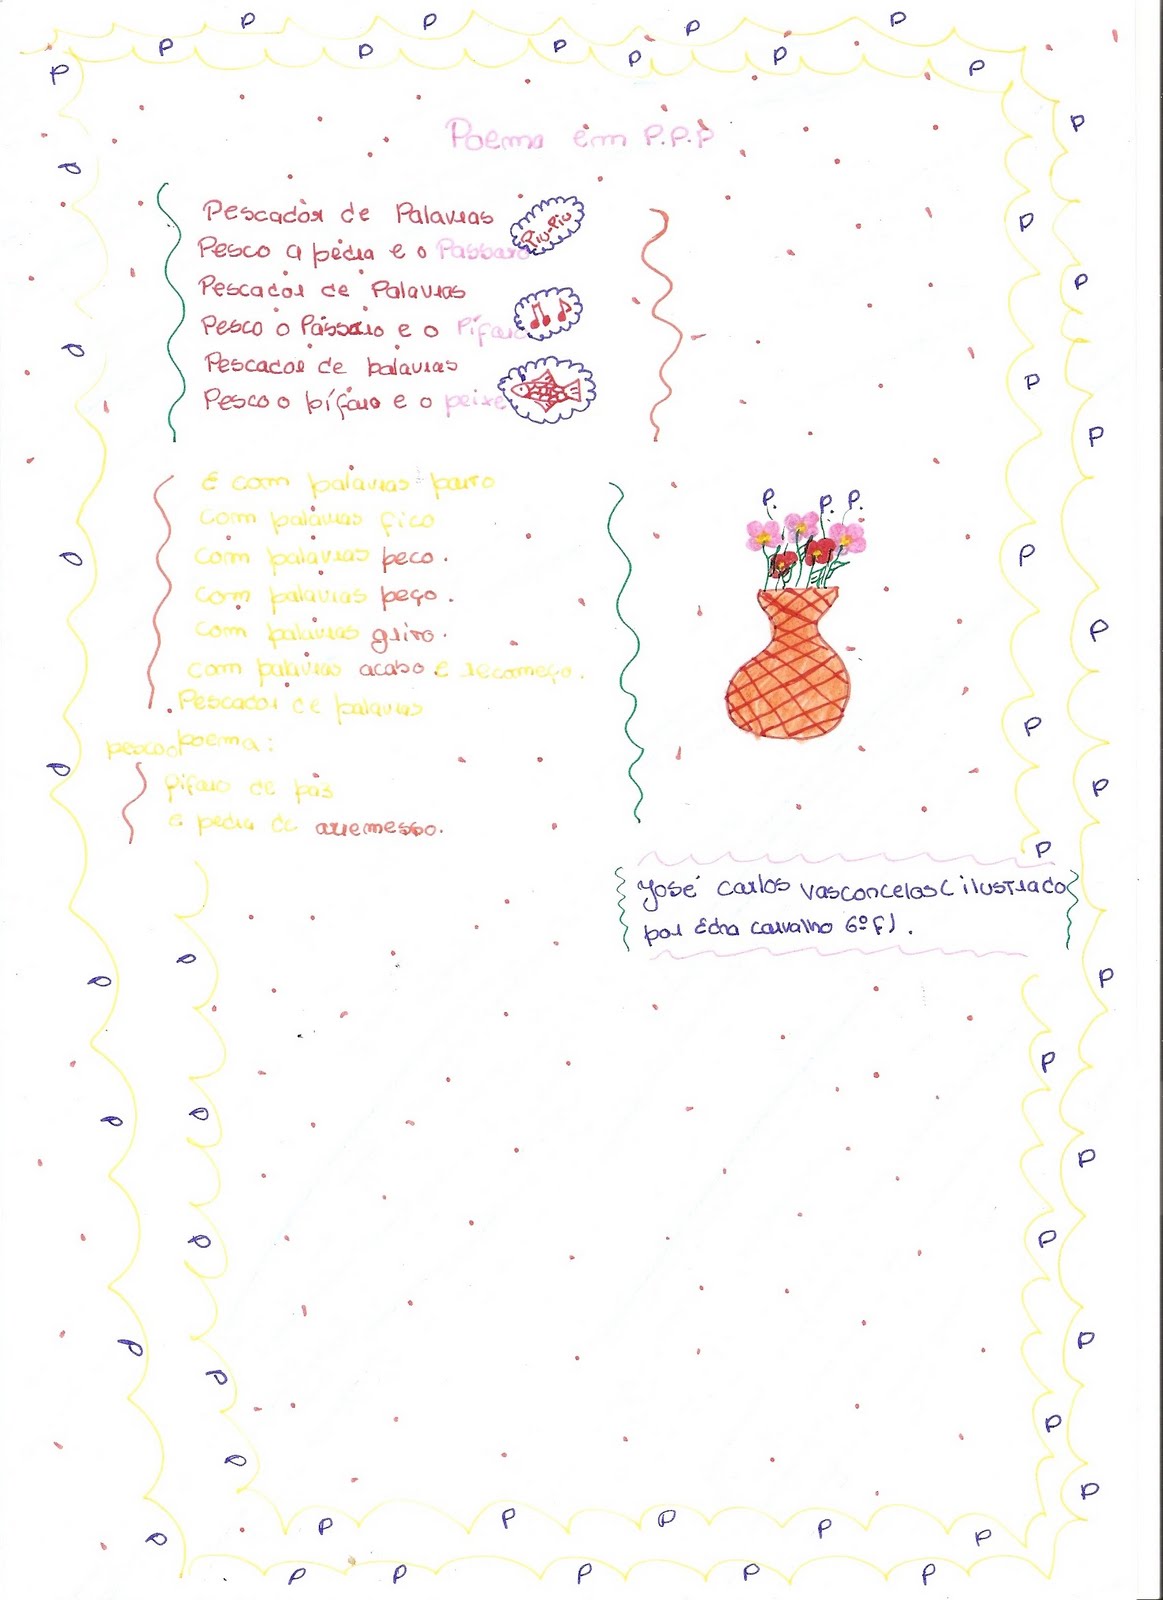 Poema em P.P.P
Pescador de Palavras
Pesco a pedra e o Passaro
Piu-Piu
Pescador de Palavras
Pesco o Pássaro e o Pífaro
Pescador de palavras
Pesco o pífaro e o peixe
É com palavras parto
com palavras fico
com palavras peco.
com palavras peço.
com palavras grito.
com palavras acabo e recomeço.
Pescador de palavras
pesco o poema:
pífaro de pás
e pedra de arremesso.
P. P. P.
José Carlos Vasconcelos (ilustrado
por Edna Carvalho 6º F).